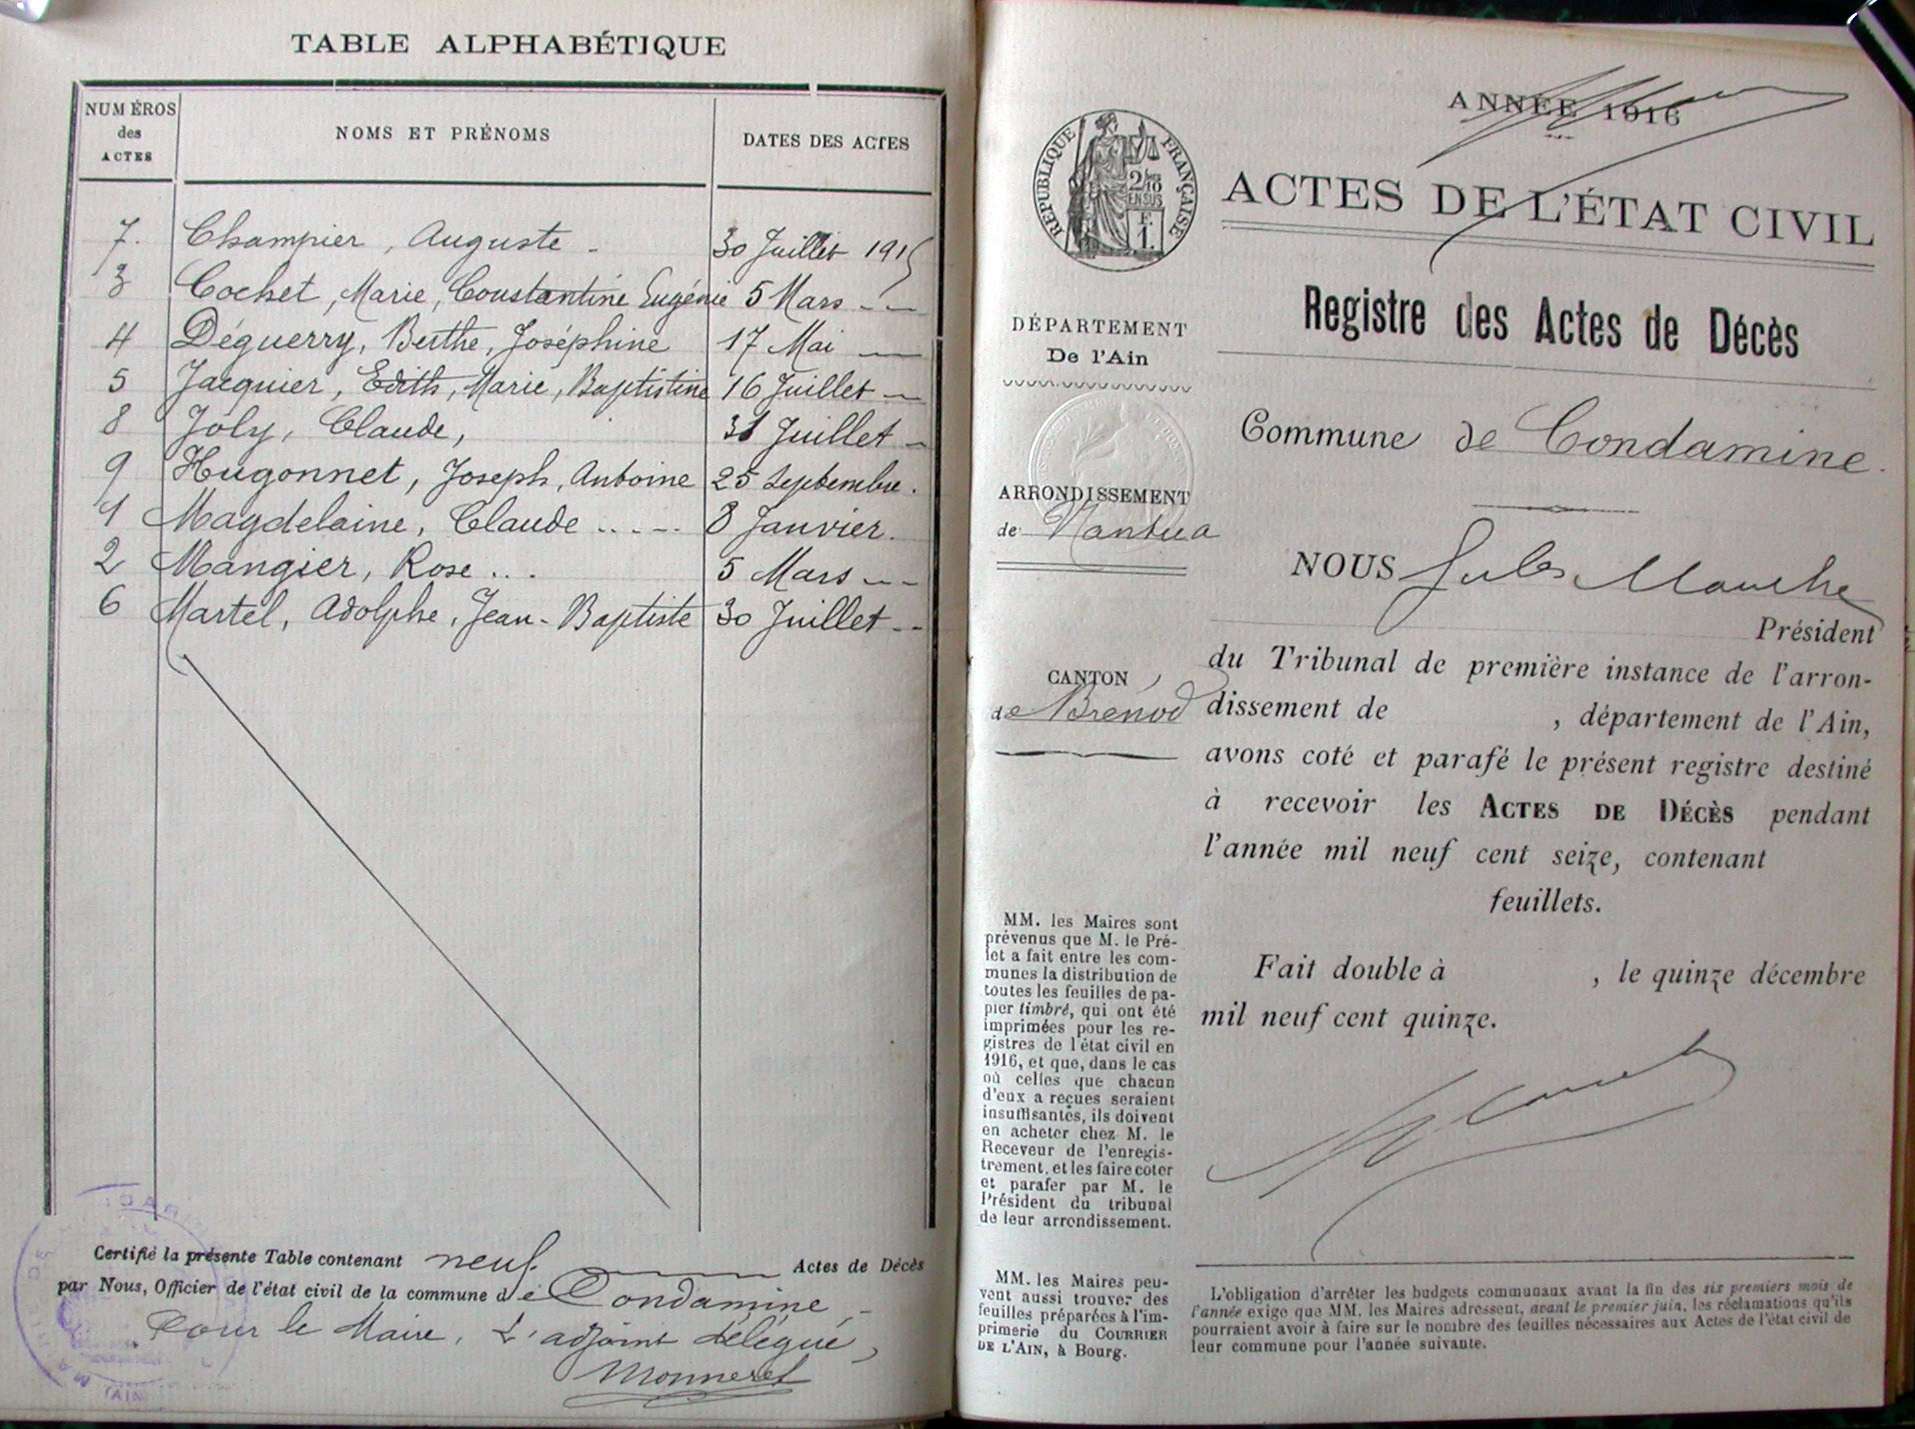 TABLE ALPHABÉTIQUE
NUMÉROS
des
ACTES
NOMS ET PRÉNOMS
DATES DES ACTES
7. Champier, Auguste - 30 Juillet 1915
3 Cochet, Marie, Constantine Eugénie 5 Mars - -
4 Déguerry, Berthe, Joséphine 17 Mai -
5 Jacquier, Edith, Marie, Baptistine 16 Juillet -
8 Joly, Claude, 31 Juillet -
9 Hugonnet, Joseph, Antoine 25 Septembre.
1 Magdelaine, Claude ..... 8 Janvier.
2 Mangier, Rose ... 5 Mars - -
6 Martel, Adolphe, Jean-Baptiste 30 Juillet - -
Certifié la présente Table contenant neuf Actes de Décès
par Nous, Officier de l'état civil de la commune de Condamine -
Pour le Maire, L'adjoint délégué,
Monneret
(AIN)
ANNÉE 1916
RÉPUBLIQUE FRANÇAISE
2/10
EN SUS
F.
1.
ACTES DE L'ÉTAT CIVIL
Registre des Actes de Décès
DÉPARTEMENT
De l'Ain
Commune de Condamine.
ARRONDISSEMENT
de Nantua
NOUS Jules
Président
du Tribunal de première instance de l'arron-
dissement de , département de l'Ain,
avons coté et parafé le présent registre destiné
à recevoir les ACTES DE DÉCÈS pendant
l'année mil neuf cent seize, contenant
feuillets.
CANTON
de Brénod
Fait double à , le quinze décembre
mil neuf cent quinze.
MM. les Maires sont
prévenus que M. le Pré-
fet a fait entre les com-
munes la distribution de
toutes les feuilles de pa-
pier timbré, qui ont été
imprimées pour les re-
gistres de l'état civil en
1916, et que, dans le cas
où celles que chacun
d'eux a reçues seraient
insuffisantes, ils doivent
en acheter chez M. le
Receveur de l'enregis-
trement, et les faire coter
et parafer par M. le
Président du tribunal
de leur arrondissement.
MM. les Maires peu-
vent aussi trouver des
feuilles préparées à l'im-
primerie du COURRIER
DE L'AIN, à Bourg.
L'obligation d'arrêter les budgets communaux avant la fin des six premiers mois de
l'année exige que MM. les Maires adressent, avant le premier juin, les réclamations qu'ils
pourraient avoir à faire sur le nombre des feuilles nécessaires aux Actes de l'état civil de
leur commune pour l'année suivante.